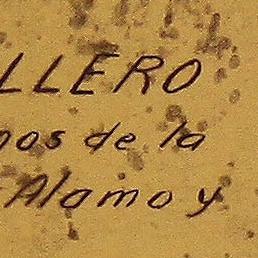 LLERO
nos de la
Alamo y